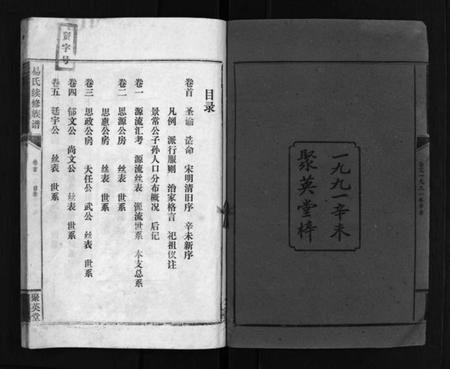 一九九一辛未
聚英堂梓
寰字号
目录
卷首 圣谕 诰命 宋明清旧序 辛未新序
凡例 派行服则 治家格言 祀祖仪注
景常公子孙人口分布概况 后记
卷一 源流汇考 源流丝表 源流世系 本支总系
卷二 思源公房 丝表 世系
思惠公房 丝表 世系
卷三 思政公房 大任公 武公 丝表 世系
卷四 郁文公 尚文公 丝表 世系
卷五 廷宇公 丝表 世系
易氏续修族谱
卷首
目录
聚英堂